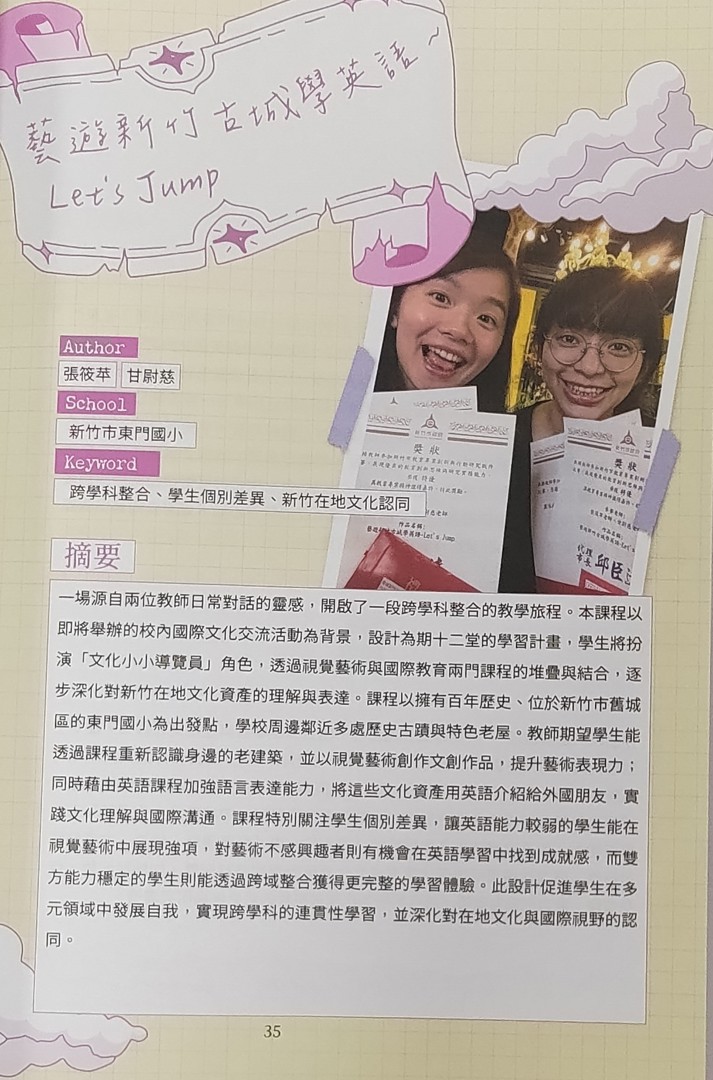 藝遊新竹古城學英語~
Let's Jump
Author
張筱苹 甘尉慈
School
新竹市東門國小
Keyword
跨學科整合、學生個別差異、新竹在地文化認同
新竹市政府
獎狀
作品名稱:
藝遊新竹古城學英語-Let's Jump
獎狀
代理
市長
邱臣
摘要
一場源自兩位教師日常對話的靈感，開啟了一段跨學科整合的教學旅程。本課程以
即將舉辦的校內國際文化交流活動為背景，設計為期十二堂的學習計畫，學生將扮
演「文化小小導覽員」角色，透過視覺藝術與國際教育兩門課程的堆疊與結合，逐
步深化對新竹在地文化資產的理解與表達。課程以擁有百年歷史、位於新竹市舊城
區的東門國小為出發點，學校周邊鄰近多處歷史古蹟與特色老屋。教師期望學生能
透過課程重新認識身邊的老建築，並以視覺藝術創作文創作品，提升藝術表現力；
同時藉由英語課程加強語言表達能力，將這些文化資產用英語介紹給外國朋友，實
踐文化理解與國際溝通。課程特別關注學生個別差異，讓英語能力較弱的學生能在
視覺藝術中展現強項，對藝術不感興趣者則有機會在英語學習中找到成就感，而雙
方能力穩定的學生則能透過跨域整合獲得更完整的學習體驗。此設計促進學生在多
元領域中發展自我，實現跨學科的連貫性學習，並深化對在地文化與國際視野的認
同。
35